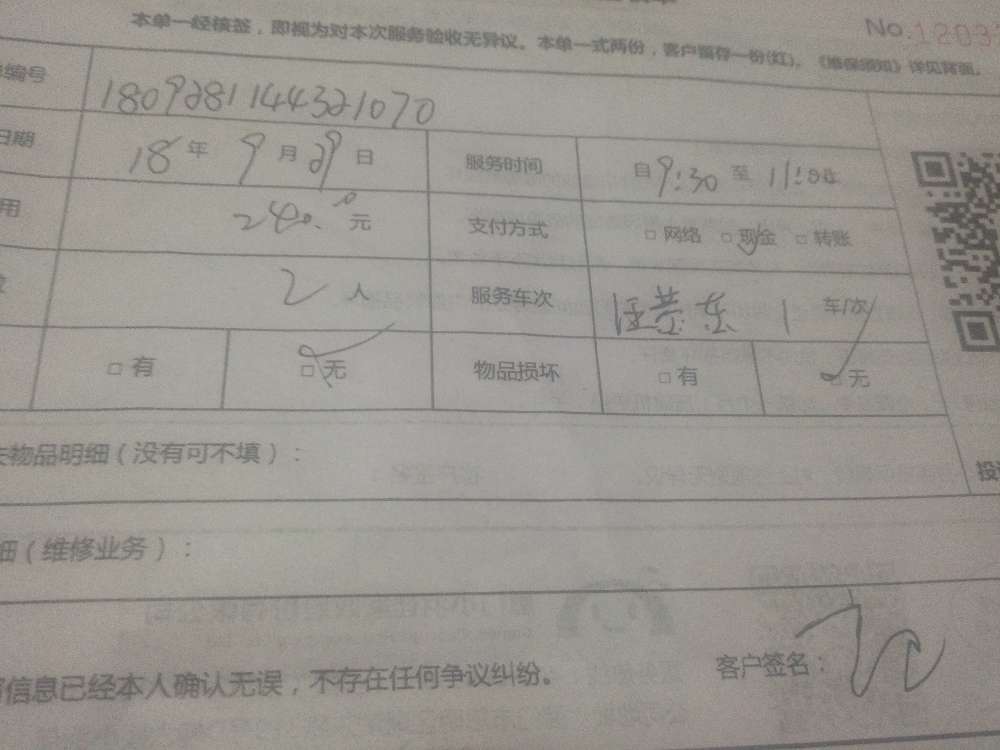 本单一经核签，即视为对本次服务验收无异议。本单一式两份，客户留存一份(红)。《维保须知》详见背面。
No.1203
编号 1809281144321070
日期 18年 9月29日 服务时间 自9:30 至 11:
用 240.0元 支付方式 □网络 □现金 □转账
2人 服务车次 1 车/次
□有 □无 物品损坏 □有 □无
物品明细（没有可不填）：
细（维修业务）：
信息已经本人确认无误，不存在任何争议纠纷。 客户签名：